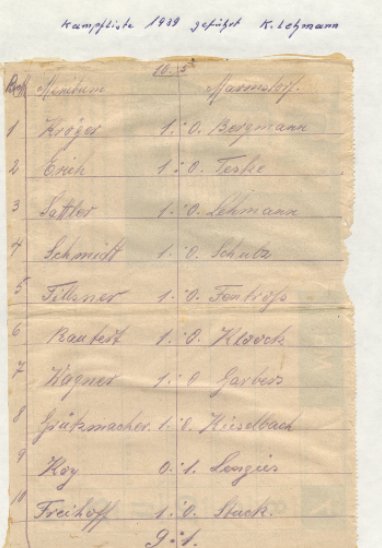 Kampfliste 1939 geführt K. Lehmann
10. 5.
Brett Marmstorf.
1 Kröger 1:0. Bergmann
2 Erich 1:0. Teske
3 Sattler 1:0. Lehmann
4 Schmidt 1:0. Schulz
5 Fillsner 1:0.
6 Rautert 1:0. Kloock
7 Wagner 1:0 Garbers
8 Grützmacher 1:0. Kieselbach
9 Kay 0:1. Lengies
10 Freihoff 1:0. Stuck.
9:1.